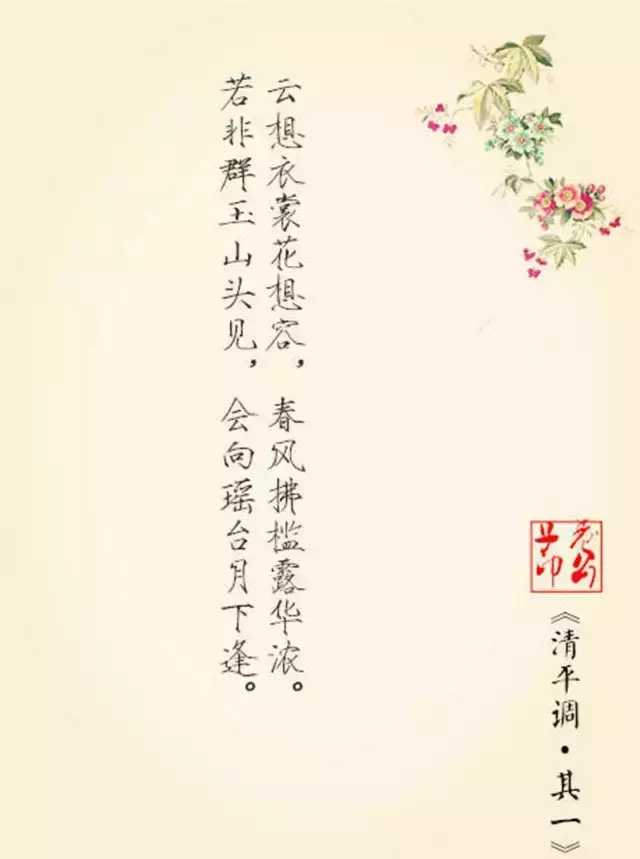 云想衣裳花想容，春风拂槛露华浓。
若非群玉山头见，会向瑶台月下逢。
《清平调·其一》